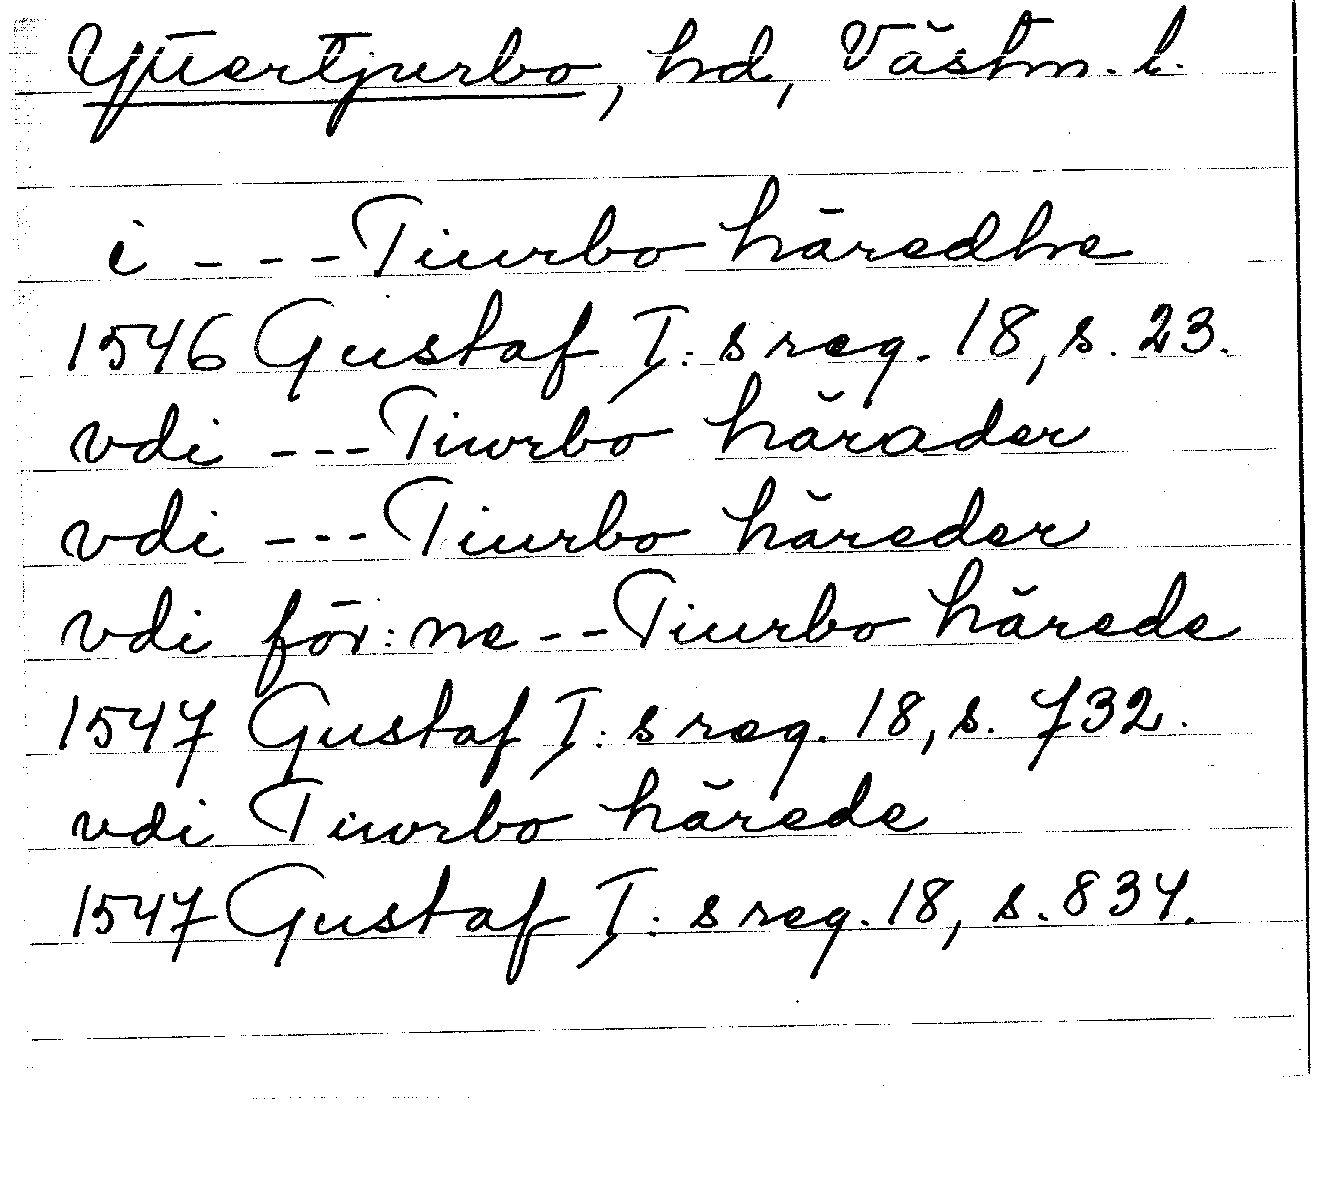 Yttertjurbo, hd, Västm. l.
i - - - Tiurbo häredhe
1546 Gustaf I: s reg. 18, s. 23.
vdi - - - Tiwrbo härader
vdi - - - Tiurbo häreder
vdi för: ne - - Tiurbo härede
1547 Gustaf I: s reg. 18, s. 732.
vdi Tiwrbo härede
1547 Gustaf I: s reg. 18, s. 834.